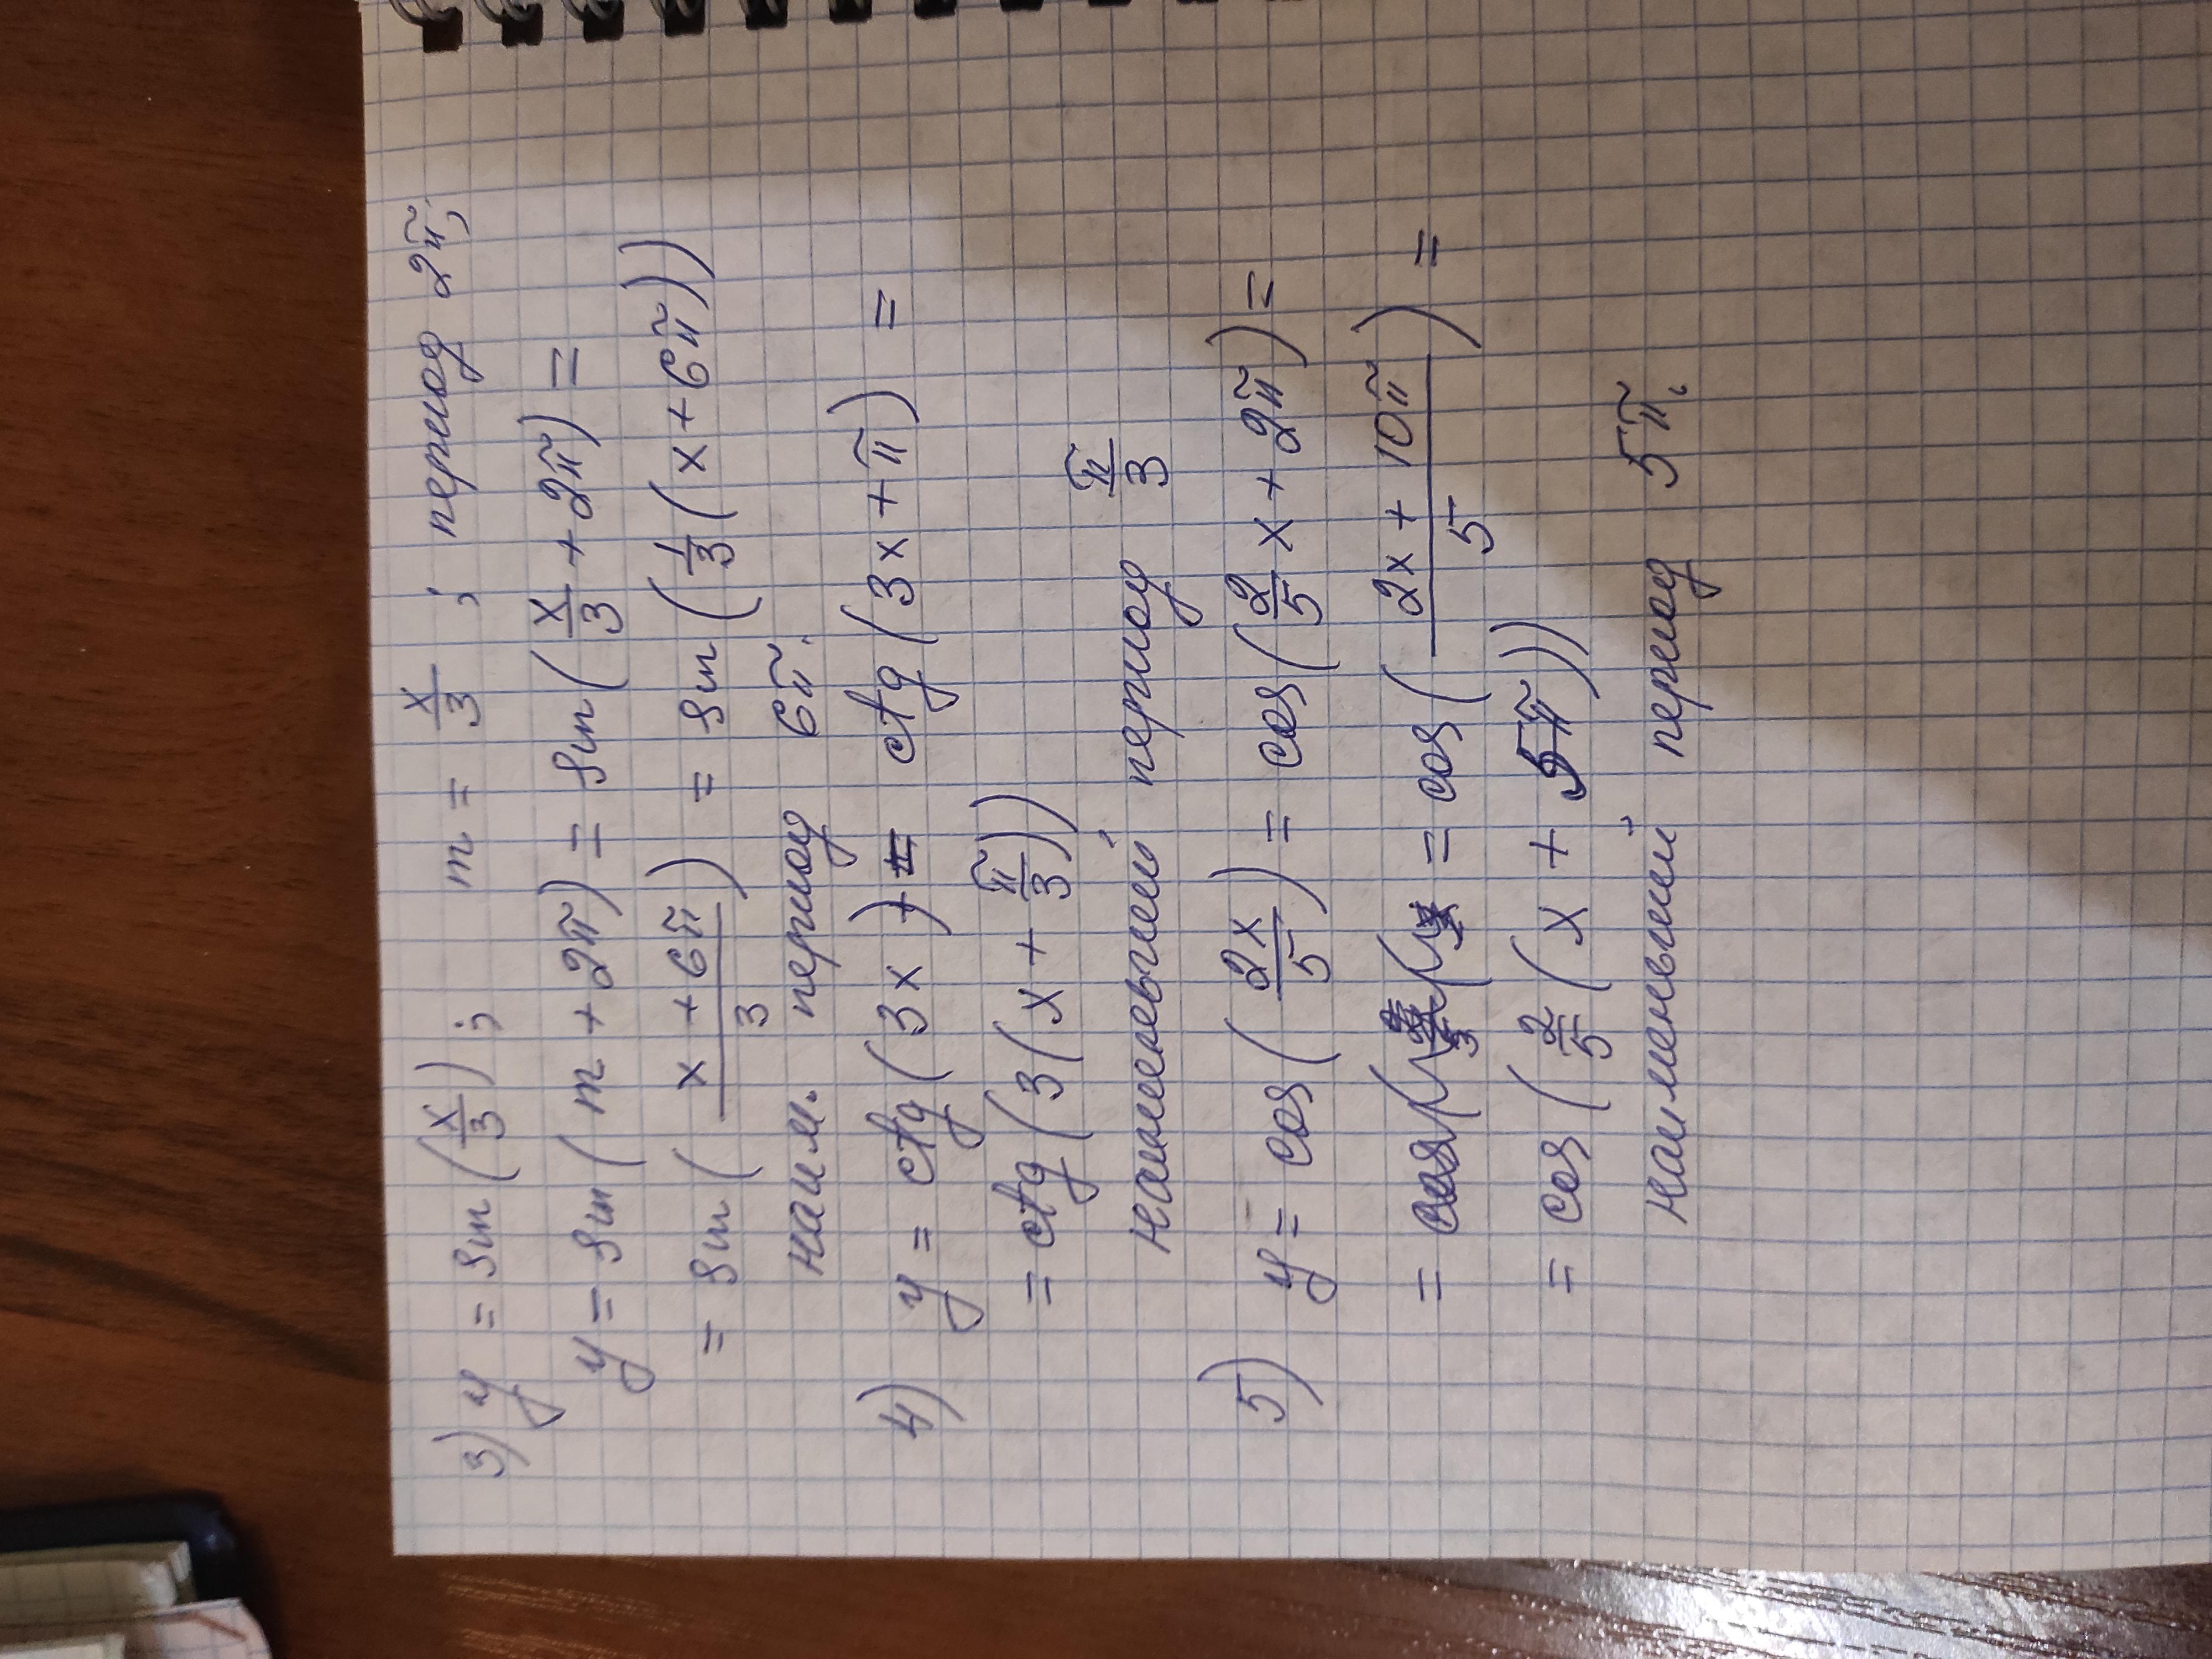 3) y = sin(x/3); m = x/3; период 2π;
y = sin(m + 2π) = sin(x/3 + 2π) =
= sin((x + 6π)/3) = sin(1/3(x + 6π))
наим. период 6π.
4) y = ctg(3x) = ctg(3x + π) =
= ctg(3(x + π/3))
наименьший период π/3
5) y = cos(2x/5) = cos(2/5 x + 2π) =
= cos((2x + 10π)/5) =
= cos(2/5(x + 5π))
наименьший период 5π.